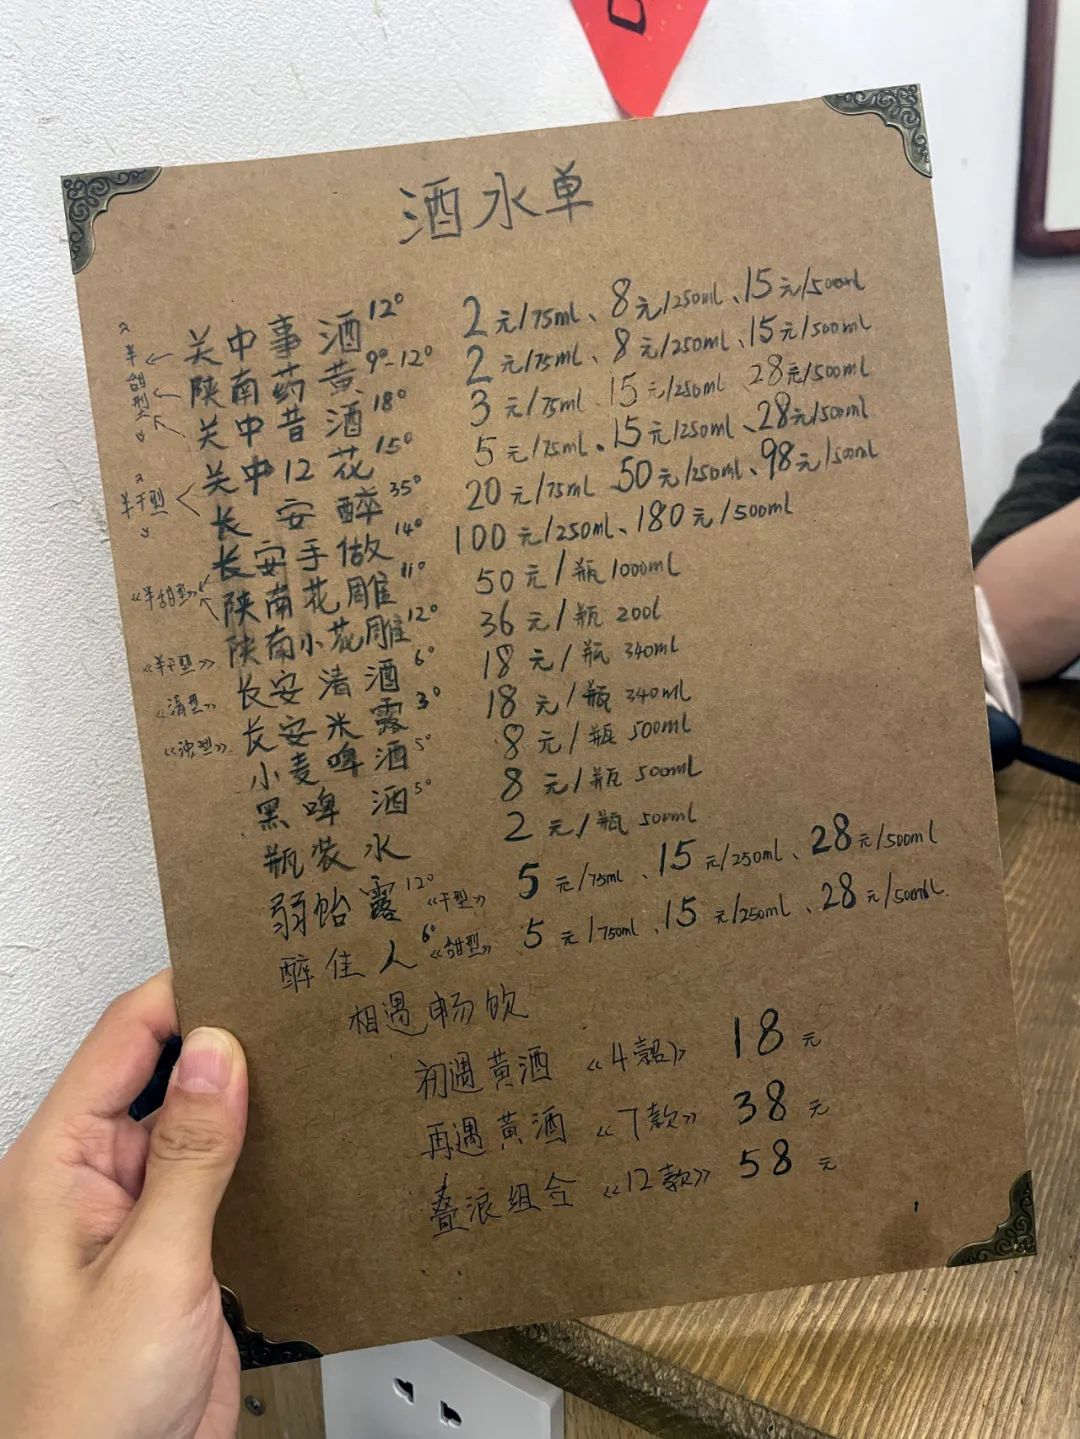 酒水单
关中事酒12° 2元/75ml、8元/250ml、15元/500ml
陕南药黄9°-12° 2元/75ml、8元/250ml、15元/500ml
关中昔酒18° 3元/75ml、15元/250ml 28元/500ml
关中12花15° 5元/75ml、15元/250ml、28元/500ml
长安醉35° 20元/75ml 50元/250ml、98元/500ml
长安手做14° 100元/250ml、180元/500ml
陕南花雕11° 50元/瓶1000ml
陕南小花雕12° 36元/瓶 200l
长安清酒6° 18元/瓶 340ml
长安米露3° 18元/瓶 340ml
小麦啤酒5° 8元/瓶 500ml
黑啤酒5° 8元/瓶 500ml
瓶装水 2元/瓶 500ml
弱饴露12°《干型》 5元/75ml、15元/250ml、28元/500ml
醉佳人6°《甜型》 5元/750ml、15元/250ml、28元/500ml.
《半甜型》
《半干型》
《半甜型》
《半干型》
《清型》
《浓型》
相遇畅饮
初遇黄酒《4款》 18元
再遇黄酒《7款》 38元
叠浪组合《12款》 58元